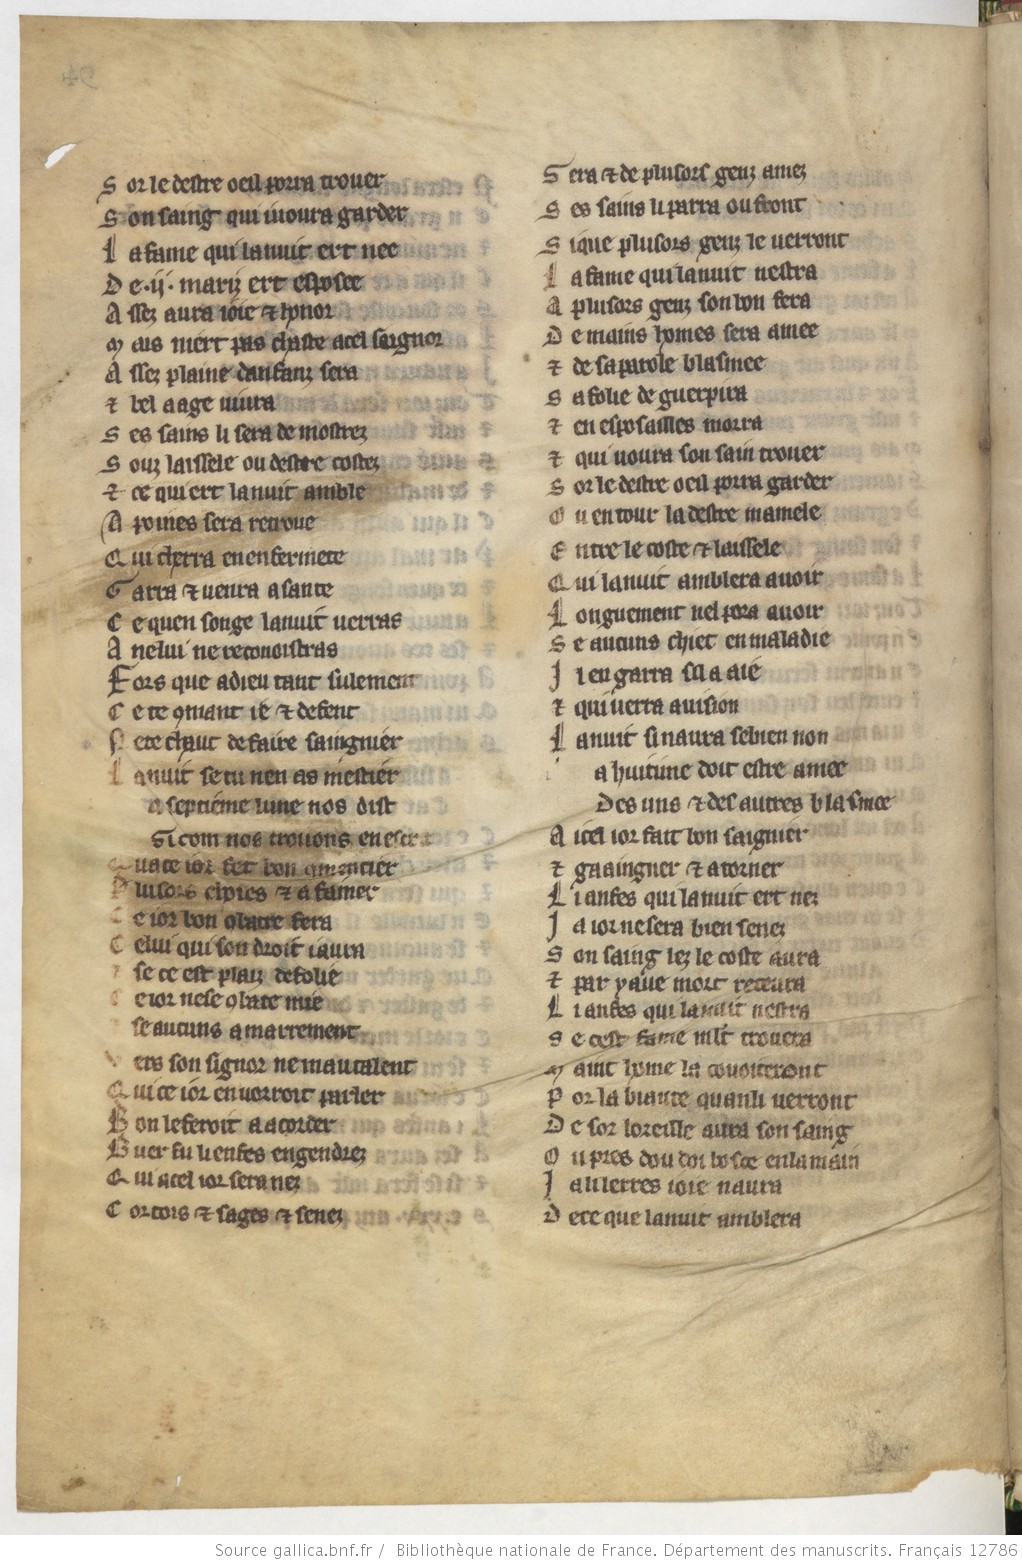 S or le destre oeil porra trouer
S on saing qui i uoura garder
L a fame qui la nuit ert nee
D e .ij. mariz ert esposee
A ssez aura ioie ⁊ honor
M ais niert pas chaste a cel seignor
A ssez plaine danfanz sera
⁊ bel aage uiura
S es sains li sera demostrez
S ouz laissele ou destre costez
⁊ ce qui ert la nuit amble
A poines sera retroue
Q ui cherra en enfermete
G arra ⁊ uenra a sante
C e quen songe la nuit uerras
A nelui ne reconoistras
F ors que a dieu tant sulement
C e te ꝯmant ie ⁊ defent
N e te chaut de faire saingnier
L a nuit se tu nen as mestier
A septieme lune nos dist
Si com nos trouons en escrit
Q uace ior fet bon
P lusors choses ⁊ a
C e ior bon ꝯbatre fera
C elui qui son droit i aura
⁊ se ce est plaiz de folie
C e ior ne se ꝯbate mie
⁊ se aucuns a marrement
V ers son signor ne mautalent
Q ui ce ior en uorroit parler
B on le feroit a acorder
B uer fu li enfes engendrez
Q ui a cel ior sera nez
C ortois ⁊ sages ⁊ senez
S era ⁊ de plusors genz amez
S es sains li parra ou front
S i que plusors genz le uerront
L a fame qui la nuit nestra
A plusors genz son bon fera
D e mains homes sera amee
⁊ de sa parole blasmee
S a folie deguerpira
⁊ en esposailles morra
⁊ qui uoura son sain trouer
S or le destre oeil porra garder
O u entour la destre mamele
E ntre le coste ⁊ laissele
Q ui la nuit amblera auoir
L onguement nel pora auoir
S e aucuns chiet en maladie
I l en garra sil a aie
⁊ qui uerra auision
L a nuit si naura se bien non
a huitime doit estre amee
Des uns ⁊ des autres blasmee
A icel ior fait bon saignier
⁊ gaaingner ⁊ atorner
L i anfes qui la nuit ert nez
J a ior ne sera bien senez
S on saing lez le coste aura
⁊ par yaue mort receura
L i anfes qui la nuit nestra
S e cest fame mlt trouera
M aint home la couoiteront
P or la biaute quan li uerront
D e sor loreille aura son saing
O u pres dou doi en la main
J a li lerres ioie naura
D e ce que la nuit amblera
Source gallica.bnf.fr / Bibliothèque nationale de France. Département des manuscrits. Français 12786